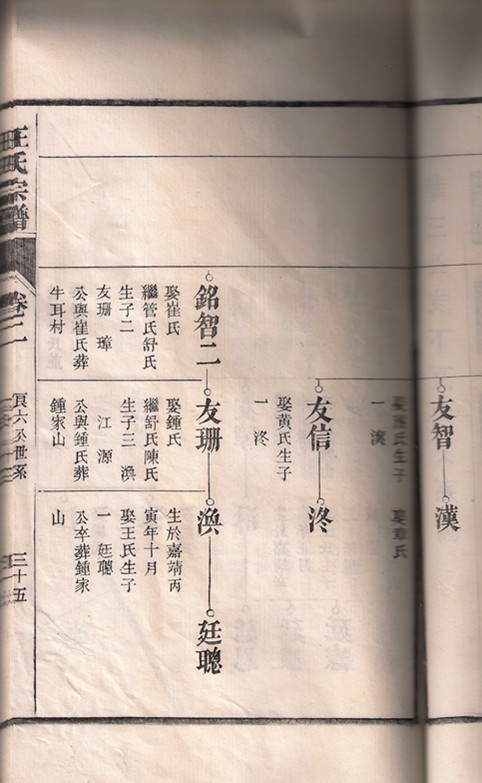 友智
漢
娶章氏
一漢
友信
泈
娶黃氏生子
一泈
銘智二
友珊
渙
廷聰
娶崔氏
繼管氏舒氏
生子二
友珊 璋
公與崔氏葬
牛耳村
娶鍾氏
繼舒氏陳氏
生子三 渙
江 源
公與鍾氏葬
鍾家山
生於嘉靖丙
寅年十月
娶王氏生子
一廷聰
公卒葬鍾家
山
汪氏宗譜
卷二
良六公世系
三十五